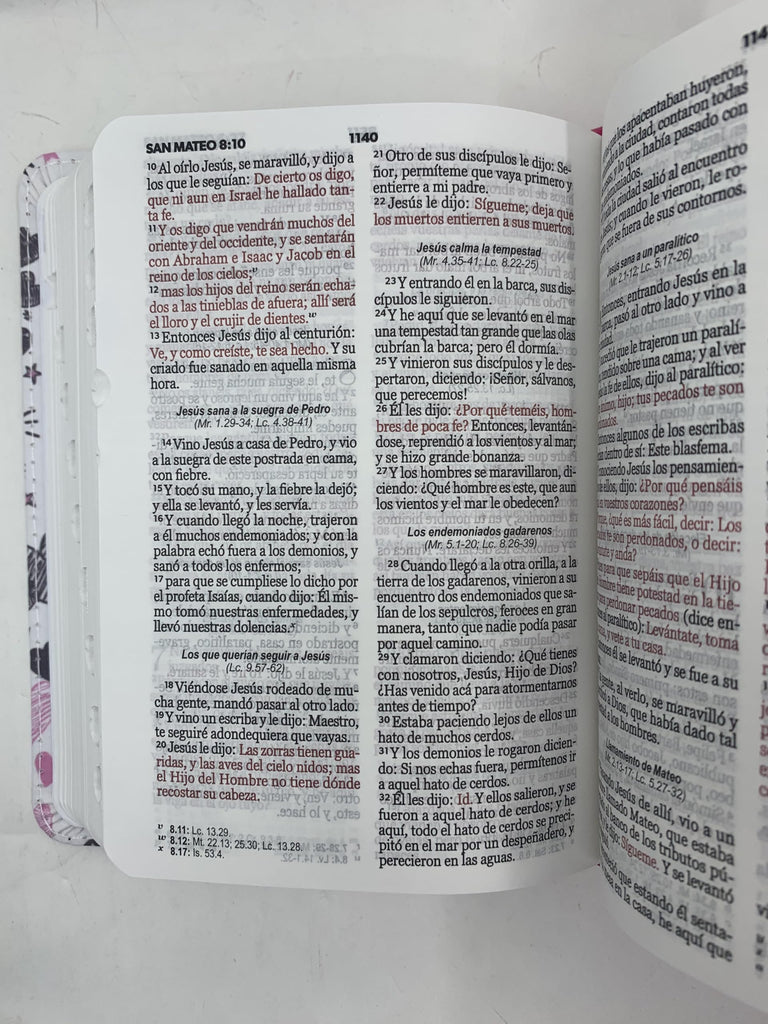 SAN MATEO 8:10
1140
10 Al oírlo Jesús, se maravilló, y dijo a
los que le seguían: De cierto os digo,
que ni aun en Israel he hallado tan-
ta fe.
11 Y os digo que vendrán muchos del
oriente y del occidente, y se sentarán
con Abraham e Isaac y Jacob en el
reino de los cielos;v
12 mas los hijos del reino serán echa-
dos a las tinieblas de afuera; allí será
el lloro y el crujir de dientes.w
13 Entonces Jesús dijo al centurión:
Ve, y como creíste, te sea hecho. Y su
criado fue sanado en aquella misma
hora.
Jesús sana a la suegra de Pedro
(Mr. 1.29-34; Lc. 4.38-41)
14 Vino Jesús a casa de Pedro, y vio
a la suegra de este postrada en cama,
con fiebre.
15 Y tocó su mano, y la fiebre la dejó;
y ella se levantó, y les servía.
16 Y cuando llegó la noche, trajeron
a él muchos endemoniados; y con la
palabra echó fuera a los demonios, y
sanó a todos los enfermos;
17 para que se cumpliese lo dicho por
el profeta Isaías, cuando dijo: Él mis-
mo tomó nuestras enfermedades, y
llevó nuestras dolencias.x
Los que querían seguir a Jesús
(Lc. 9.57-62)
18 Viéndose Jesús rodeado de mu-
cha gente, mandó pasar al otro lado.
19 Y vino un escriba y le dijo: Maestro,
te seguiré adondequiera que vayas.
20 Jesús le dijo: Las zorras tienen gua-
ridas, y las aves del cielo nidos; mas
el Hijo del Hombre no tiene dónde
recostar su cabeza.
v 8.11: Lc. 13.29.
w 8.12: Mt. 22.13; 25.30; Lc. 13.28.
x 8.17: Is. 53.4.
21 Otro de sus discípulos le dijo: Se-
ñor, permíteme que vaya primero y
entierre a mi padre.
22 Jesús le dijo: Sígueme; deja que
los muertos entierren a sus muertos.
Jesús calma la tempestad
(Mr. 4.35-41; Lc. 8.22-25)
23 Y entrando él en la barca, sus dis-
cípulos le siguieron.
24 Y he aquí que se levantó en el mar
una tempestad tan grande que las olas
cubrían la barca; pero él dormía.
25 Y vinieron sus discípulos y le des-
pertaron, diciendo: ¡Señor, sálvanos,
que perecemos!
26 Él les dijo: ¿Por qué teméis, hom-
bres de poca fe? Entonces, levantán-
dose, reprendió a los vientos y al mar;
y se hizo grande bonanza.
27 Y los hombres se maravillaron, di-
ciendo: ¿Qué hombre es este, que aun
los vientos y el mar le obedecen?
Los endemoniados gadarenos
(Mr. 5.1-20; Lc. 8.26-39)
28 Cuando llegó a la otra orilla, a la
tierra de los gadarenos, vinieron a su
encuentro dos endemoniados que sa-
lían de los sepulcros, feroces en gran
manera, tanto que nadie podía pasar
por aquel camino.
29 Y clamaron diciendo: ¿Qué tienes
con nosotros, Jesús, Hijo de Dios?
¿Has venido acá para atormentarnos
antes de tiempo?
30 Estaba paciendo lejos de ellos un
hato de muchos cerdos.
31 Y los demonios le rogaron dicien-
do: Si nos echas fuera, permítenos ir
a aquel hato de cerdos.
32 Él les dijo: Id. Y ellos salieron, y se
fueron a aquel hato de cerdos; y he
aquí, todo el hato de cerdos se preci-
pitó en el mar por un despeñadero, y
perecieron en las aguas.
los apacentaban huyeron,
a la ciudad, contaron todas
y lo que había pasado con
la ciudad salió al encuentro
y cuando le vieron, le ro-
que se fuera de sus contornos.
Jesús sana a un paralítico
(Mr. 2.1-12; Lc. 5.17-26)
entrando Jesús en la
pasó al otro lado y vino a
que le trajeron un paralí-
tendido sobre una cama; y al ver
la fe de ellos, dijo al paralítico:
hijo; tus pecados te son
algunos de los escribas
dentro de sí: Este blasfema.
Jesús los pensamien-
de ellos, dijo: ¿Por qué pensáis
en vuestros corazones?
¿qué es más fácil, decir: Los
te son perdonados, o decir:
y anda?
para que sepáis que el Hijo
tiene potestad en la tie-
perdonar pecados (dice en-
al paralítico): Levántate, toma
y vete a tu casa.
él se levantó y se fue a su
al verlo, se maravilló y
a Dios, que había dado tal
a los hombres.
Llamamiento de Mateo
2.13-17; Lc. 5.27-32)
Jesús de allí, vio a un
llamado Mateo, que estaba
de los tributos pú-
dijo: Sígueme. Y se levantó
que estando él senta-
en la casa, he aquí que